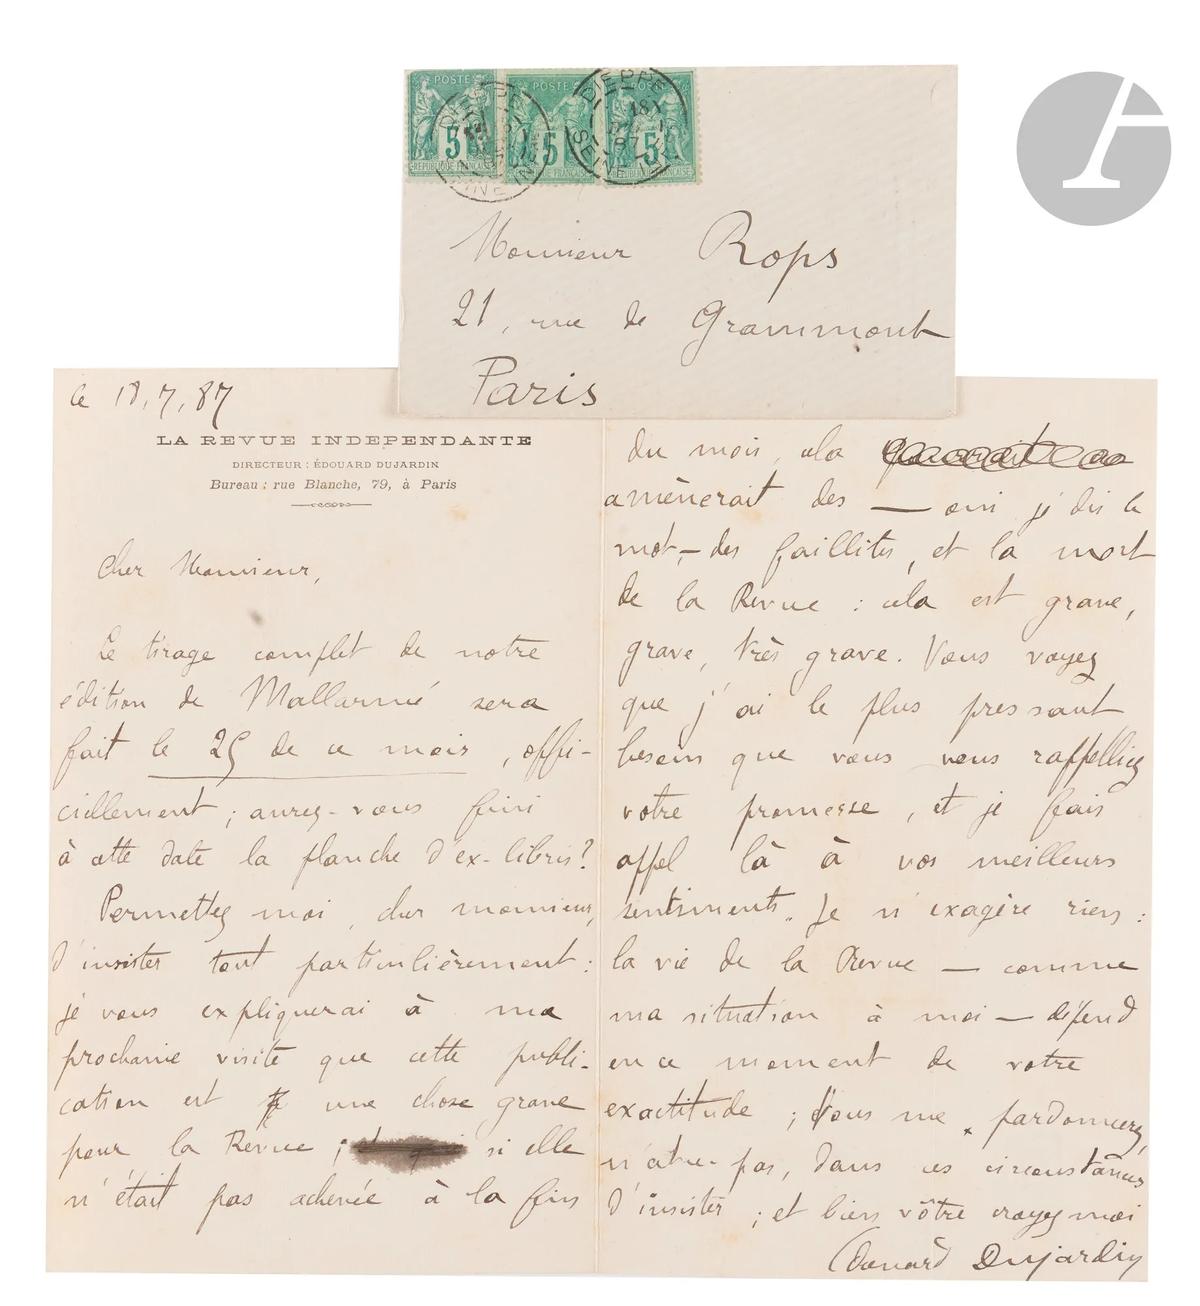 POSTE POSTE POSTE
5 5 5
REPUBLIQUE FRANÇAISE
DIEPPE
SEINE INF
DIEPPE
SEINE INF
Monsieur Rops
21, rue de Grammont
Paris
le 18, 7, 87
LA REVUE INDEPENDANTE
DIRECTEUR : ÉDOUARD DUJARDIN
Bureau : rue Blanche, 79, à Paris
Cher Monsieur,
Le tirage complet de notre
édition de Mallarmé sera
fait le 25 de ce mois, offi-
ciellement ; aurez-vous fini
à cette date la planche d'ex-libris ?
Permettez moi, cher monsieur,
d'insister tout particulièrement :
je vous expliquerai à ma
prochaine visite que cette publi-
cation est une chose grave
pour la Revue ; si elle
n'était pas achevée à la fin
du mois, cela
amènerait des — oui je dis le
mot, — des faillites, et la mort
de la Revue : cela est grave,
grave, très grave. Vous voyez
que j'ai le plus pressant
besoin que vous vous rappelliez
votre promesse, et je fais
appel là à vos meilleurs
sentiments. Je n'exagère rien :
la vie de la Revue — comme
ma situation à moi — dépend
en ce moment de votre
exactitude ; Vous me pardonnerez,
n'est-ce pas, dans ces circonstances
d'insister ; et bien vôtre croyez moi
Edouard Dujardin